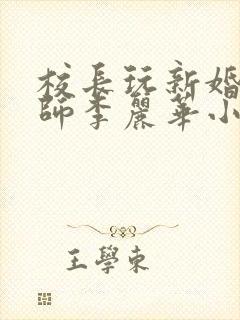 校長玩新婚
師李麗華小
王學東